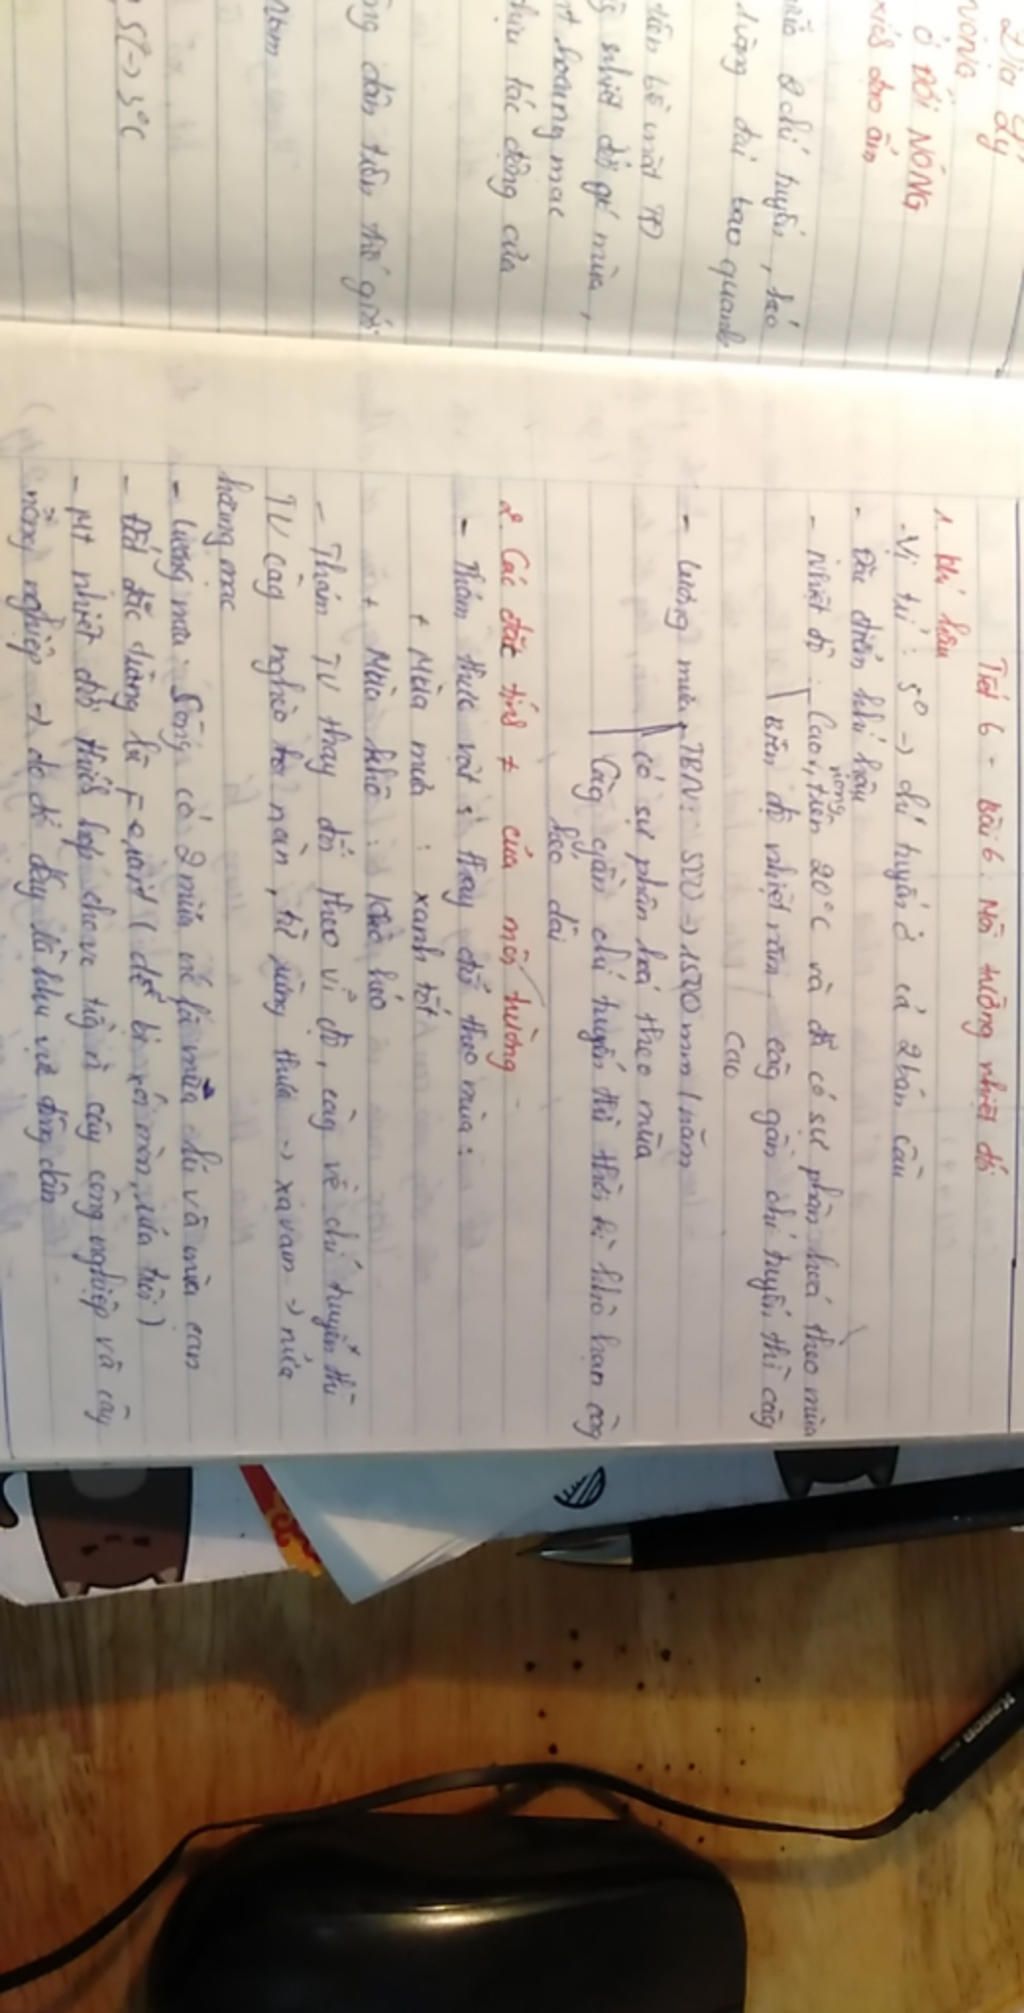 Địa lý
NÓNG
Ở ĐỚI NÓNG
xích đạo ẩm
2 chí tuyến, kéo
bao quanh
nhiệt đới gió mùa,
hoang mạc
tác động của
dân trên thế giới
5 → 5°C
Tiết 6 - Bài 6: Môi trường nhiệt đới
1. Khí hậu
- Vị trí: 5° → chí tuyến ở cả 2 bán cầu
- Đặc điểm khí hậu
- Nhiệt độ: Cao, trên 20°C và đã có sự phân hoá theo mùa
nóng
Biên độ nhiệt năm càng gần chí tuyến thì càng
cao
- Lượng mưa TBN: 500 → 1500 mm / năm
có sự phân hoá theo mùa
Càng gần chí tuyến thì thời kì khô hạn càng
kéo dài
2. Các đặc tính ≠ của môi trường
- Thảm thực vật: thay đổi theo mùa:
+ Mùa mưa: xanh tốt
+ Mùa khô: khô héo
- Thảm TV thay đổi theo vĩ độ, càng về chí tuyến thì
TV càng nghèo nàn, từ rừng thưa → xavan → nửa
hoang mạc
- Lượng mưa: Sông có 2 mùa là mùa lũ và mùa cạn
- Đất đặc trưng là Feralit (dễ bị xói mòn, rửa trôi)
- Mt nhiệt đới thích hợp cây công nghiệp và cây
nông nghiệp → do đó đây là khu vực đông dân